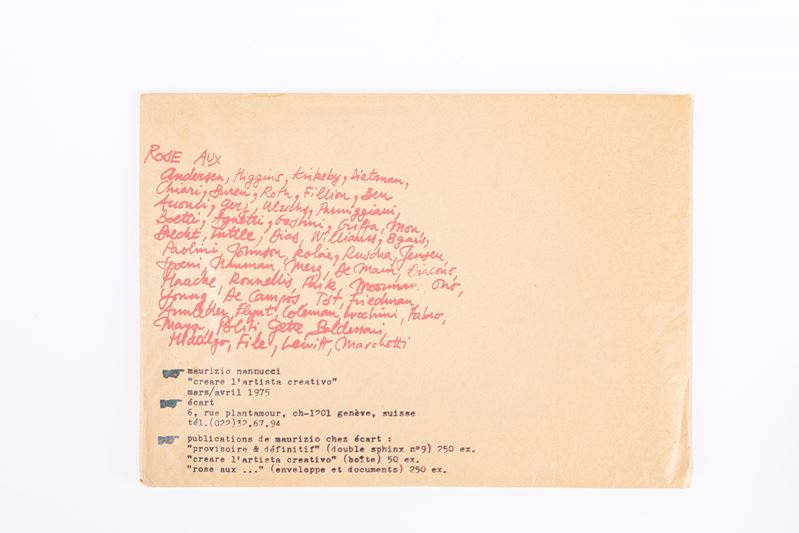 ROSE AUX
Andersen, Higgins, Kirkeby, Dietman,
Chiari, Buren, Roth, Fillion, Ben
Acconti, Gerz, Ulrichs, Parmiggiani,
Boetti, Agnetti, Gastini, Griffa, Mon,
Brecht, Tuttle, Dias, Williams, Bgars,
Paolini, Johnson, Kolar, Ruscha, Jensen,
Spoeri, Nauman, Merz, De Maria, Diacono,
Haacke, Kounellis, Paik, Moorman, Ono,
Young, De Campos, Tót, Friedman,
Armleder, Flynt, Coleman, Lucchini, Fabro,
Mayor, Politi, Gette, Baldessari,
Hidalgo, File, Lewitt, Marchetti
maurizio nannucci
"creare l'artista creativo"
mars/avril 1975
écart
6, rue plantamour, ch-1201 genève, suisse
tél.(022)32.67.94
publications de maurizio chez écart :
"provisoire & définitif" (double sphinx n°9) 250 ex.
"creare l'artista creativo" (boîte) 50 ex.
"rose aux ..." (enveloppe et documents) 250 ex.